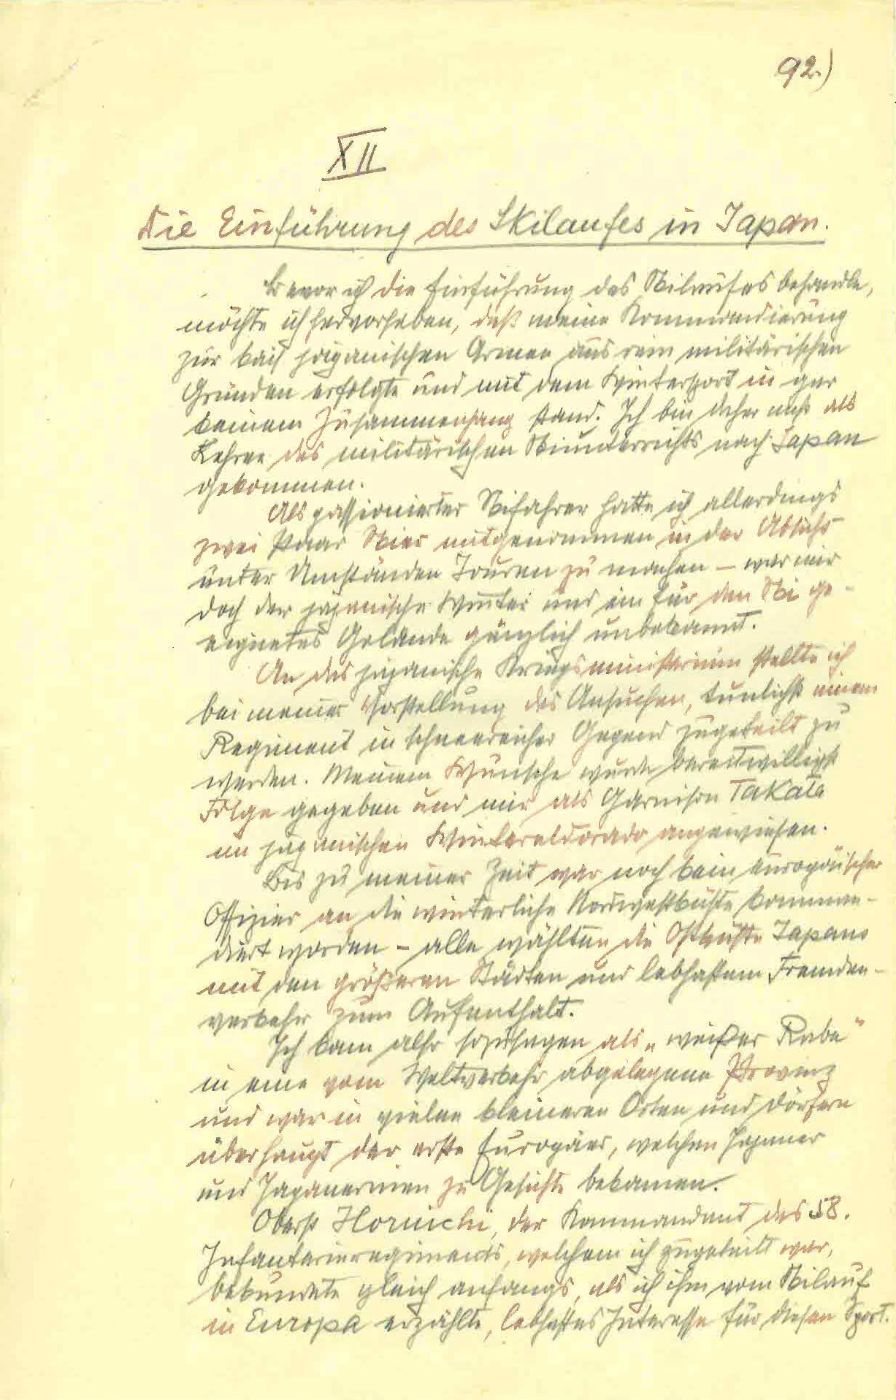 92.)
XII
Die Einführung des Skilaufes in Japan.
Bevor ich die Einführung des Skilaufes behandle,
möchte ich hervorheben, daß meine Kommandierung
zur kais japanischen Armee aus rein militärischen
Gründen erfolgte und mit dem Wintersport in gar
keinem Zusammenhang stand. Ich bin daher nicht als
Lehrer des militärischen Skiunterrichts nach Japan
gekommen.
Als passionierter Skifahrer hatte ich allerdings
zwei Paar Skier mitgenommen in der Absicht
unter Umständen Touren zu machen – war mir
doch der japanische Winter und ein für den Ski ge-
eignetes Gelände gänzlich unbekannt.
An das japanische Kriegsministerium stellte ich
bei meiner Vorstellung das Ansuchen, tunlichst einem
Regiment in schneereicher Gegend zugeteilt zu
werden. Meinem Wunsche wurde bereitwilligst
Folge gegeben und mir als Garnison Takata
im japanischen Wintereldorado angewiesen.
Bis zu meiner Zeit war noch kein europäischer
Offizier an die winterliche Nordwestküste komman-
diert worden – alle wählten die Ostküste Japans
mit den größeren Städten und lebhaftem Fremden-
verkehr zum Aufenthalt.
Ich kam also sozusagen als „weißer Rabe"
in eine vom Weltverkehr abgelegene Provinz
und war in vielen kleineren Orten und Dörfern
überhaupt der erste Europäer, welchen Japaner
und Japanerinnen zu Gesichte bekamen.
Oberst Horiuchi, der Kommandant des 58.
Infanterieregiments, welchem ich zugeteilt war,
bekundete gleich anfangs, als ich ihm vom Skilauf
in Europa erzählte, lebhaftes Interesse für diesen Sport.